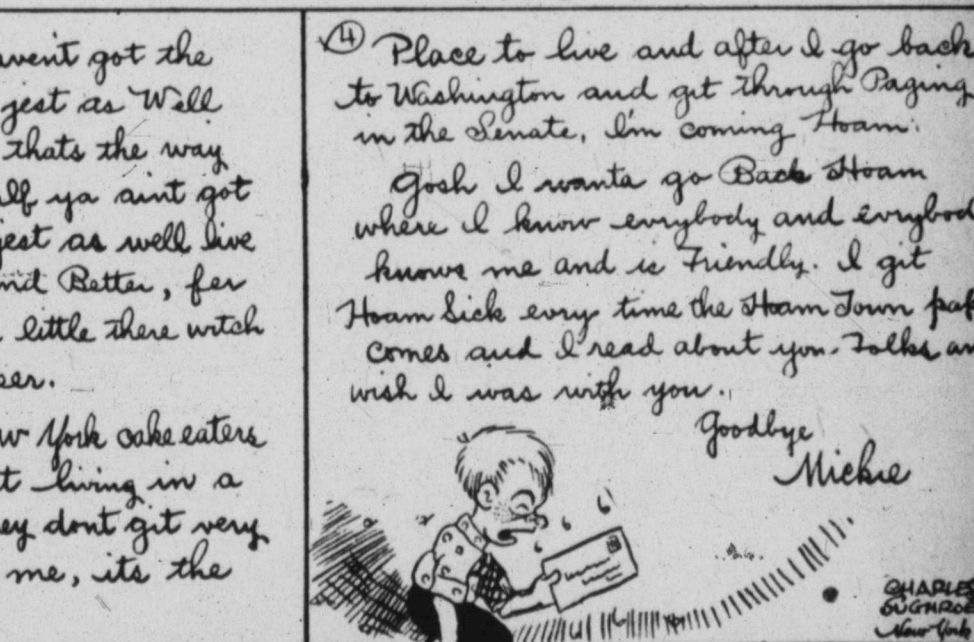 got the
jest as Well
thats the way
ya aint got
jest as well live
Better, fer
little there witch
York cake eaters
living in a
dont git very
me, its the
4
Place to live and after I go back
to Washington and git through Paging
in the Senate, I'm coming Hoam.
Gosh I wanta go Back Hoam
where I know evrybody and
knows me and is Friendly. I git
Hoam Sick evry time the Hoam Town
comes and I read about you Folks
wish I was with you.
Goodbye
Mickie
CHARLES
SUGHROE
New York